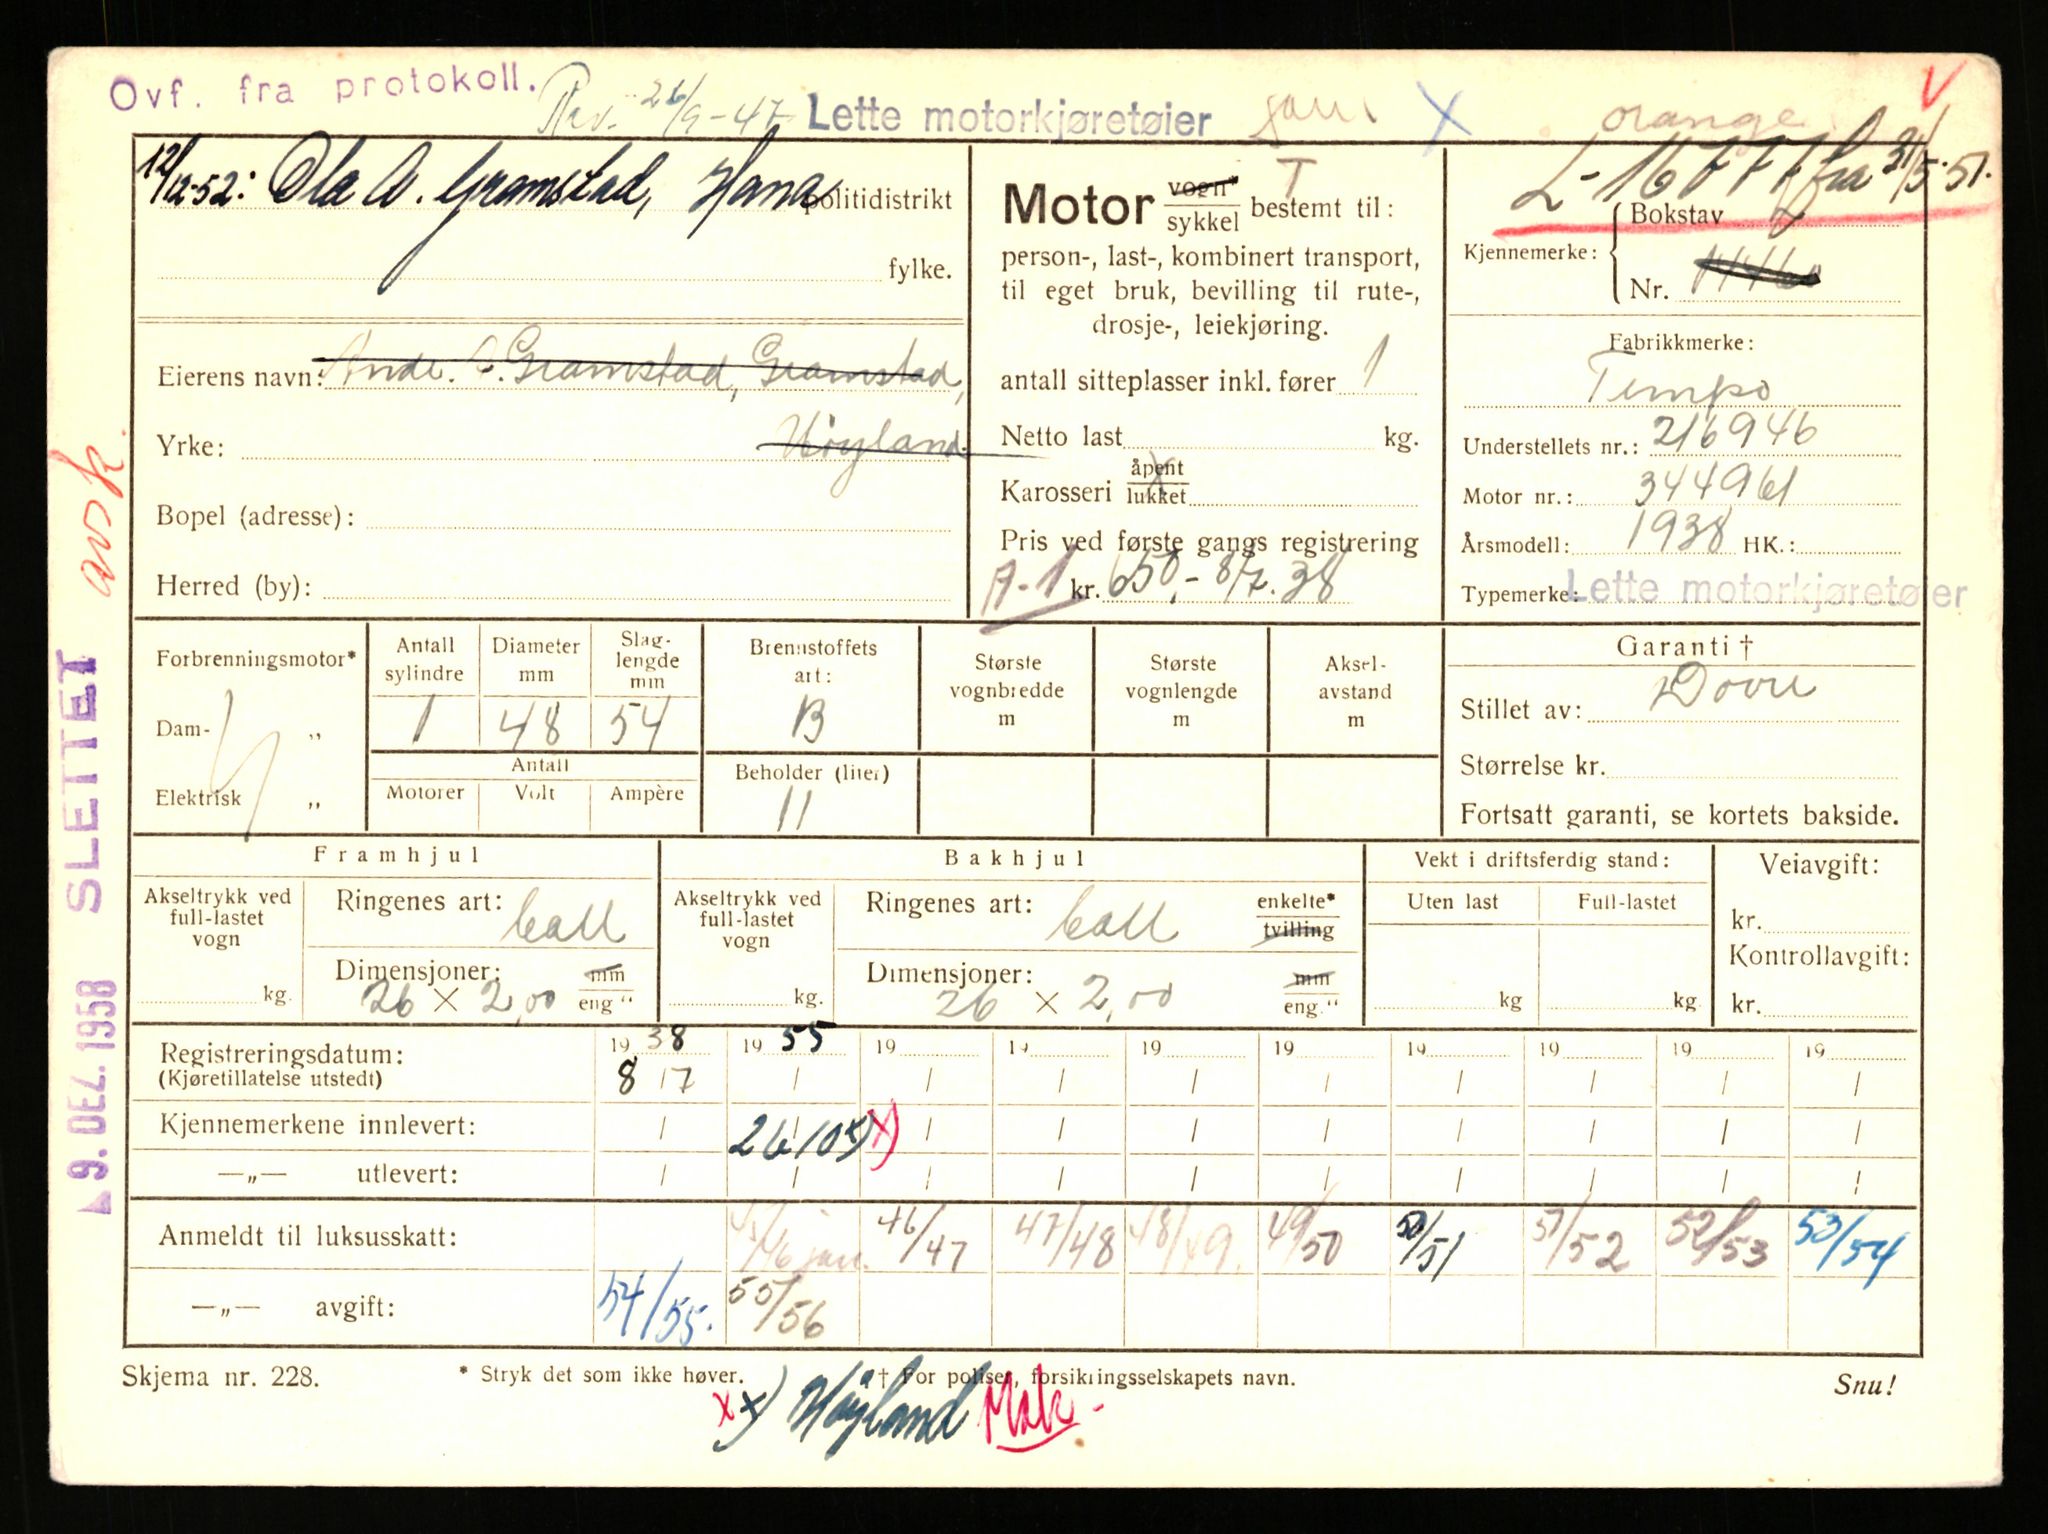 Ovf. fra protokoll. Rev. 26/9-47 Lette motorkjøretøier X orange V
12/12-52: Ola A. Gramstad, Hana politidistrikt
fylke.
Eierens navn: Gramstad, Gramstad,
Yrke: Høyland.
Bopel (adresse):
Herred (by):
Motor vogn*/sykkel T bestemt til:
person-, last-, kombinert transport,
til eget bruk, bevilling til rute-,
drosje-, leiekjøring.
antall sitteplasser inkl. fører 1
Netto last kg.
Karosseri åpent/lukket
Pris ved første gangs registrering
A-1 kr. 650,- 8/7.38
fra 31/5-51.
Kjennemerke: Bokstav L
Nr.
Fabrikkmerke:
Tempo
Understellets nr.: 216946
Motor nr.: 344961
Årsmodell: 1938 HK.:
Typemerke: Lette motorkjøretøier
Forbrenningsmotor*
Dam- „
Elektrisk „
Antall sylindre 1
Diameter mm 48
Slag-lengde mm 54
Antall
Motorer Volt Ampère
Brennstoffets art: B
Beholder (liter) 11
Største vognbredde m
Største vognlengde m
Aksel-avstand m
Garanti †
Stillet av: Dovre
Størrelse kr.
Fortsatt garanti, se kortets bakside.
Framhjul
Akseltrykk ved full-lastet vogn
kg.
Ringenes art: Call
Dimensjoner: 26 x 2,00 mm/eng“
Bakhjul
Akseltrykk ved full-lastet vogn
kg.
Ringenes art: Call enkelte*/tvilling
Dimensjoner: 26 x 2,00 mm/eng.“
Vekt i driftsferdig stand:
Uten last Full-lastet
kg kg.
Veiavgift:
kr.
Kontrollavgift:
kr.
Registreringsdatum: 1938 1955 19 19 19 19 19 19 19 19
(Kjøretillatelse utstedt) 8/7 / / / / / / / / /
Kjennemerkene innlevert: / 26/10 x) x) / / / / / / / /
—„— utlevert: / / / / / / / / / /
Anmeldt til luksusskatt: 45/46 jan. 46/47 47/48 48/49. 49/50 50/51 51/52 52/53 53/54
—„— avgift: 54/55. 55/56
Skjema nr. 228. * Stryk det som ikke høver. † For poliser, forsikringsselskapets navn. Snu!
x x) Høyland Mak.
▲9. DEZ. 1958 SLETTET avsk.